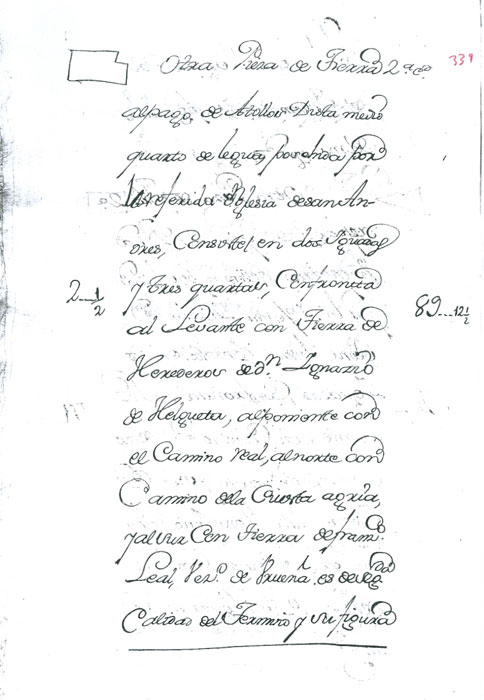 Otra Pieza de Tierra 2ª cd 339
alpago, de Atollos Dista medio
quarto de legua, posehida por
la referida Yglesia de san An-
dres, Consistte en dos Yguadas
2 1/2 y tres quartas, Confronta 89 12 1/2
al Levante con Tierra de
Herederos de Dn. Ignazio
de Helgueta, alponiente con
el Camino Real, alnorte con
Camino dela Cuesta agria,
yalsur Con Tierra de franco.
Leal, Vezo. de Buenal. es de seg.da
Calidad del Termino y su figura